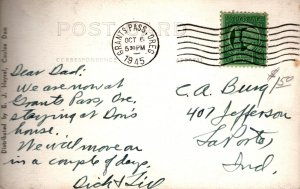 POST CARD
CORRESPONDENCE
GRANTS PASS, OREG.
OCT 6
630PM
1945
Dear Dad:
We are now at
Grants Pass, Ore.
staying at Don's
house.
We will move on
in a couple of days.
Dick & Lil
C.A. Burg
407 Jefferson
LaPorte,
Ind.
$1.50
Distributed by E. J. Harrel, Coulee Dam